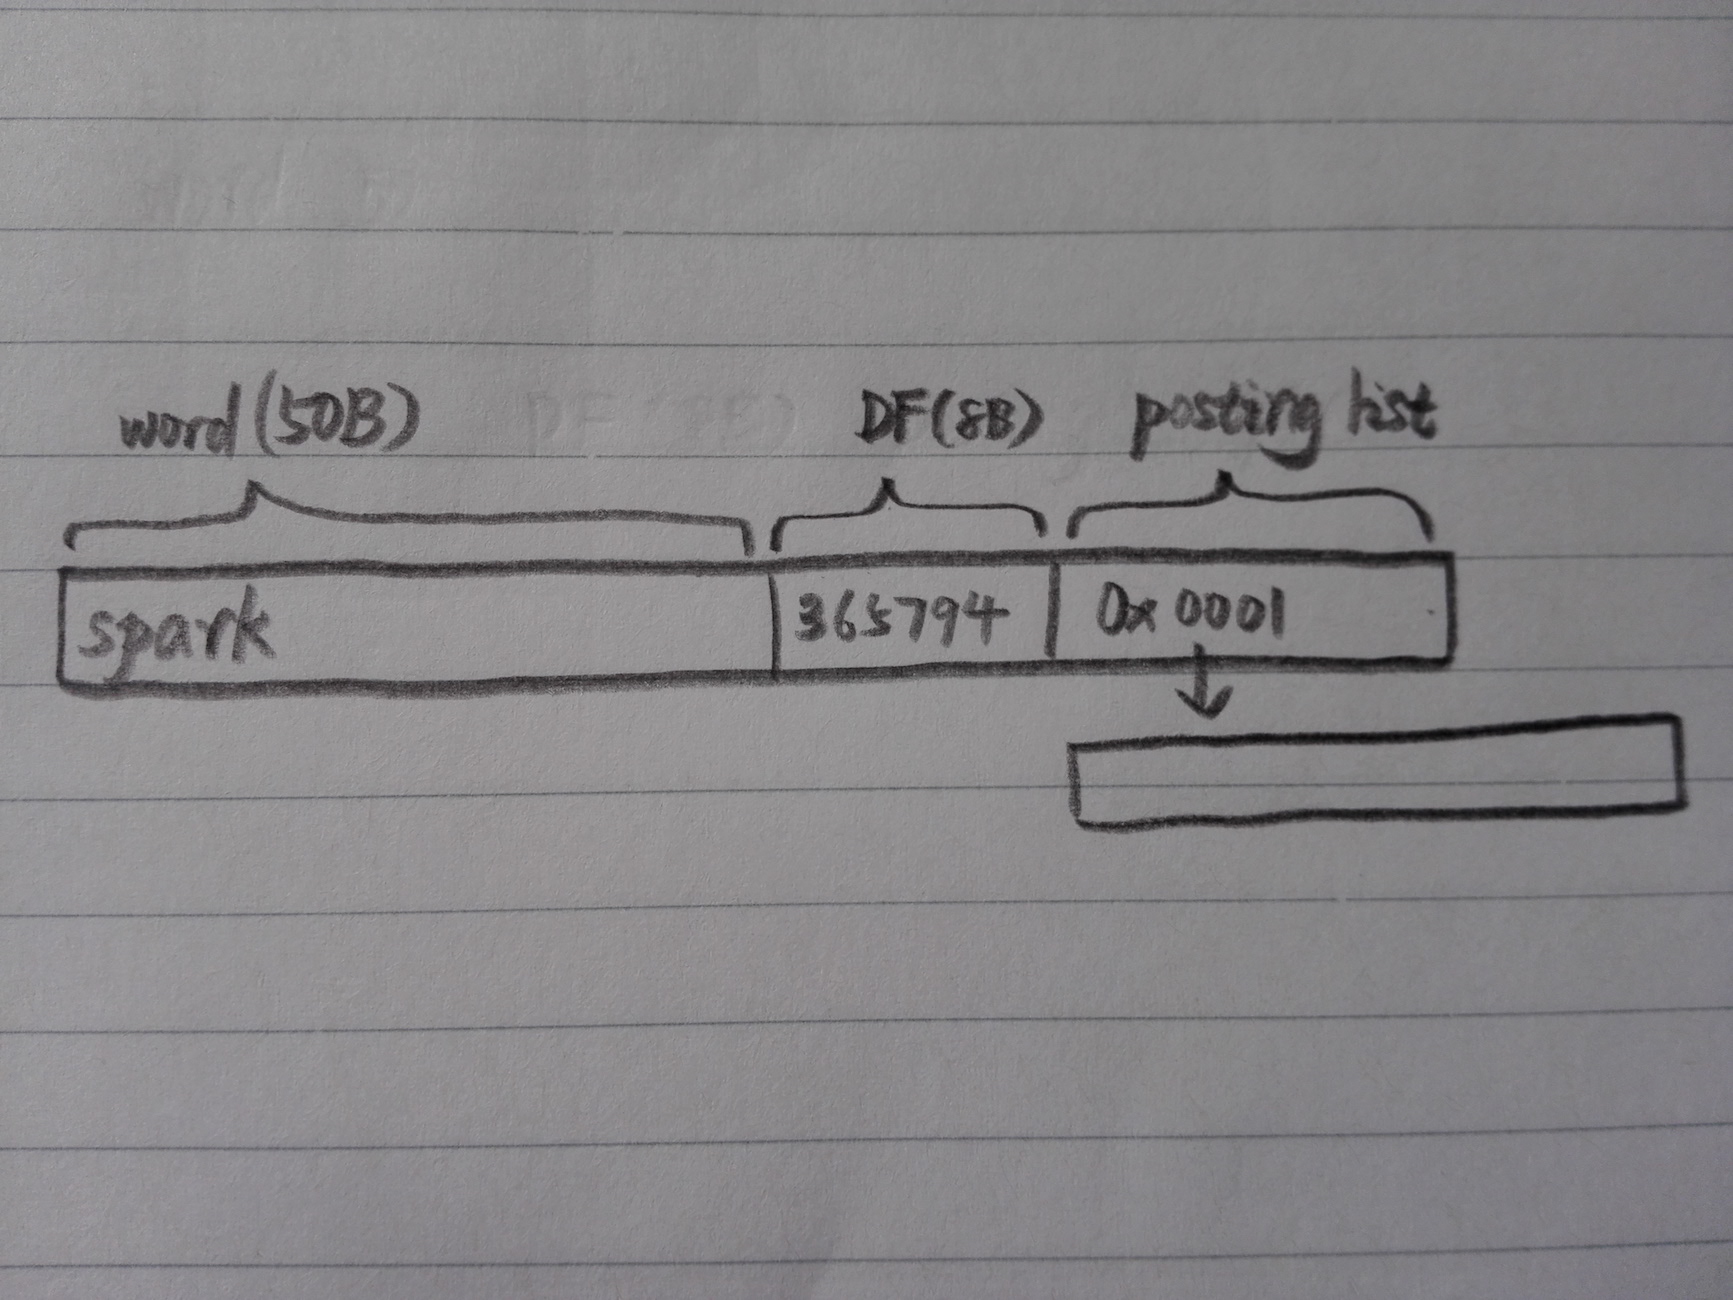 word(50B) DF(8B) posting list
spark 365794 0x0001